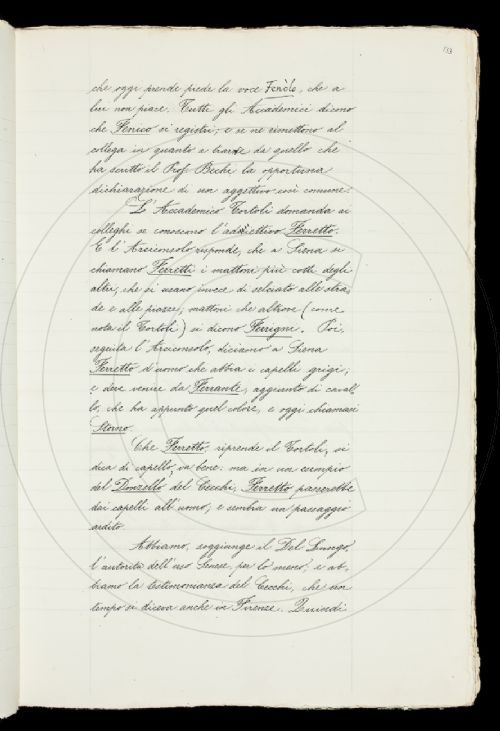 133
che oggi prende piede la voce Fenòlo, che a
lui non piace. Tutti gli Accademici dicono
che Fenico si registri; e se ne rimettono al
collega in quanto a trarre da quello che
ha scritto il Prof. Bechi la opportuna
dichiarazione di un aggettivo così comune.
L'Accademico Tortoli domanda ai
colleghi se conoscono l'addiettivo Ferretto.
E l'Arciconsolo risponde, che a Siena si
chiamano Ferretti i mattoni più cotti degli
altri, che si usano invece di selciato alle stra-
de e alle piazze, mattoni che altrove (come
nota il Tortoli) si dicono Ferrigni. Poi,
seguita l'Arciconsolo, diciamo a Siena
Ferretto d'uomo che abbia i capelli grigi;
e deve venire da Ferrante, aggiunto di caval-
lo, che ha appunto quel colore, e oggi chiamasi
Storno.
Che Ferretto, riprende il Tortoli, si
dica di capello, va bene: ma in un esempio
del Donzello del Cecchi, Ferretto passerebbe
dai capelli all'uomo; e sembra un passaggio
ardito.
Abbiamo, soggiunge il Del Lungo,
l'autorità dell'uso Senese, per lo meno; e ab-
biamo la testimonianza del Cecchi, che un
tempo si diceva anche in Firenze. Quindi